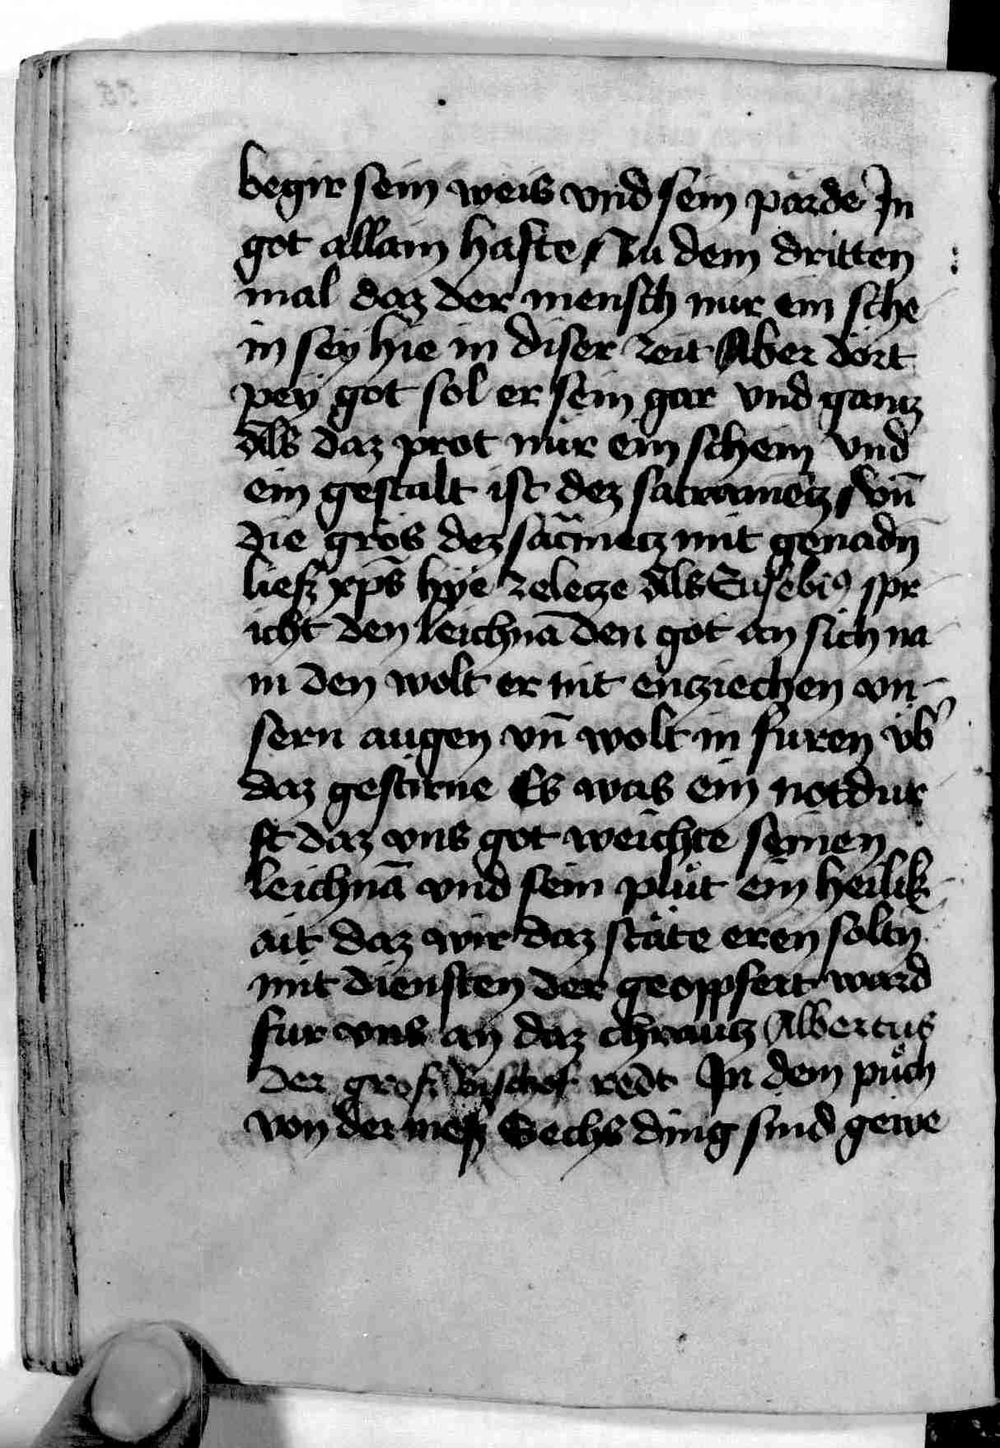 begir sein weis vnd sein pärde In
got allain hafte Zu dem dritten
mal daz der mensch nur ein sche
in sey hie in diser zeit Aber dort
pey got sol er sein gar vnd gantz
Als daz prot nur ein schein vnd
ein gestalt ist dez sacramētz vn̄
die grös dez sac̄metz mit genadn̄
liesz xp̄s hye zeletze Als Eusebiꝰ spr
icht den leichnā den got an sich na
m den wolt er nit entziechen vn-
sern augen vn̄ wolt in furen vb̾
daz gestirne Es was ein notdur
ft daz vns got weichte seinen
leichnā vnd sein plůt ein heilik
ait daz wir daz stäte eren soltn
mit diensten der geopfert ward
fur vns an daz chrautz Albertus
der grosz Bischof redt In dem půch
von der mesz Sechs ding sind gewe